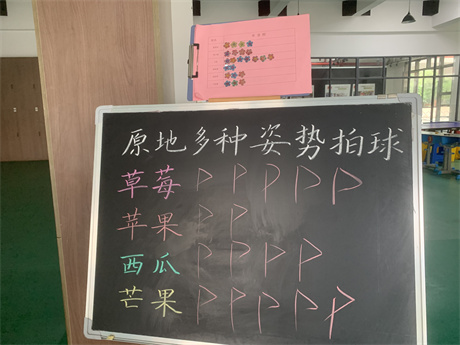 原地多种姿势拍球
草莓 P P P P P
苹果 P P
西瓜 P P P P
芒果 P P P P P